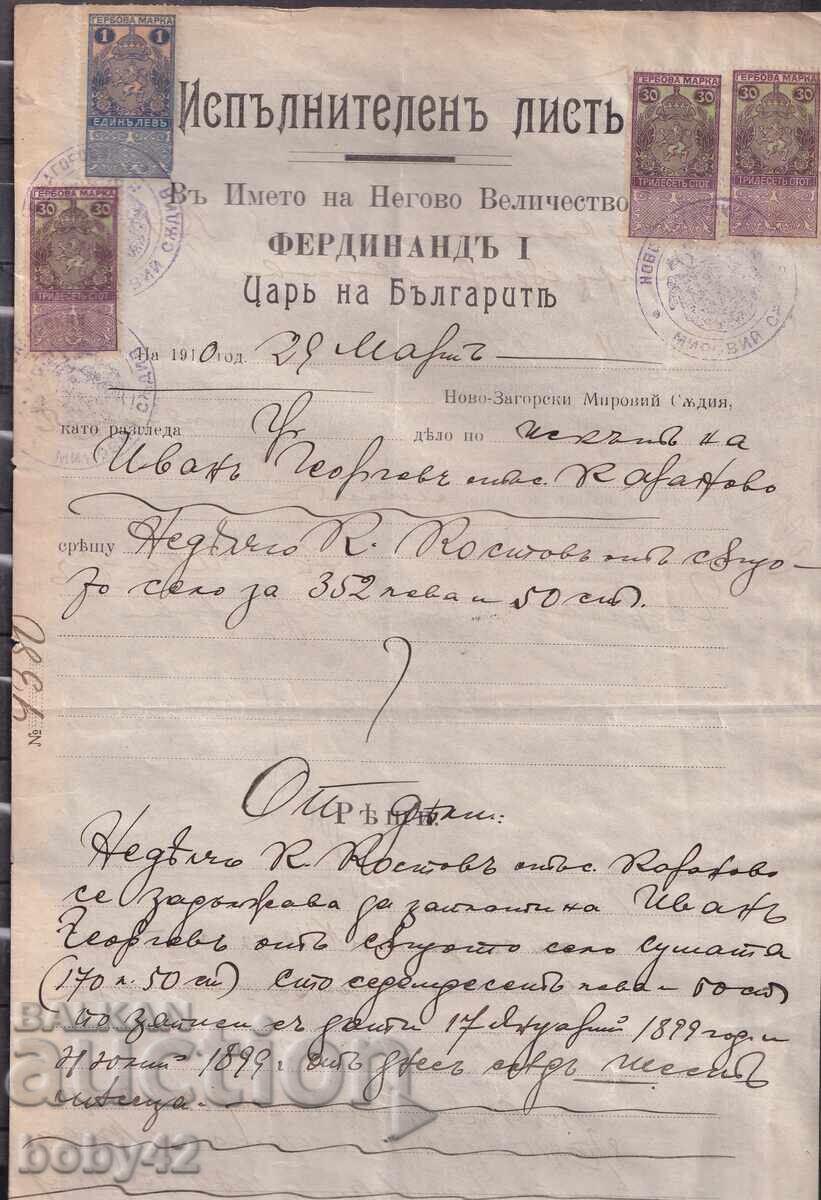 ГЕРБОВА МАРКА
1 1
ЕДИНЪ ЛЕВЪ
ГЕРБОВА МАРКА
30 30
ТРИДЕСЕТЬ СТОТ
ГЕРБОВА МАРКА
30 30
ТРИДЕСЕТЬ СТОТ
ГЕРБОВА МАРКА
30 30
ТРИДЕСЕТЬ СТОТ
Испълнителенъ листъ
Въ Името на Негово Величество
ФЕРДИНАНДЪ I
Царь на Българитѣ
МИРОВИЙ СѪДИЯ
На 1910 год. 29 Мартъ
Ново-Загорски Мировий Сѫдия,
като разгледа Уг дѣло по искътъ на
Иванъ Георгевъ отъ с. Караново
срѣщу Недѣлчо К. Костовъ отъ сѫщо-
то село за 352 лева и 50 ст.
№ 4380
Опредѣли:
Рѣши:
Недѣлчо К. Костовъ отъ с. Караново
се задължава да заплати на Иванъ
Георгевъ отъ сѫщото село сумата
(170 л. 50 ст) сто седемдесеть лева и 50 ст
по записи съ дати 17 Януарий 1899 год. и
Юний 1899 г. отъ днесъ слѣдъ шесть
мѣсеца.
BALKAN
auction
boby42